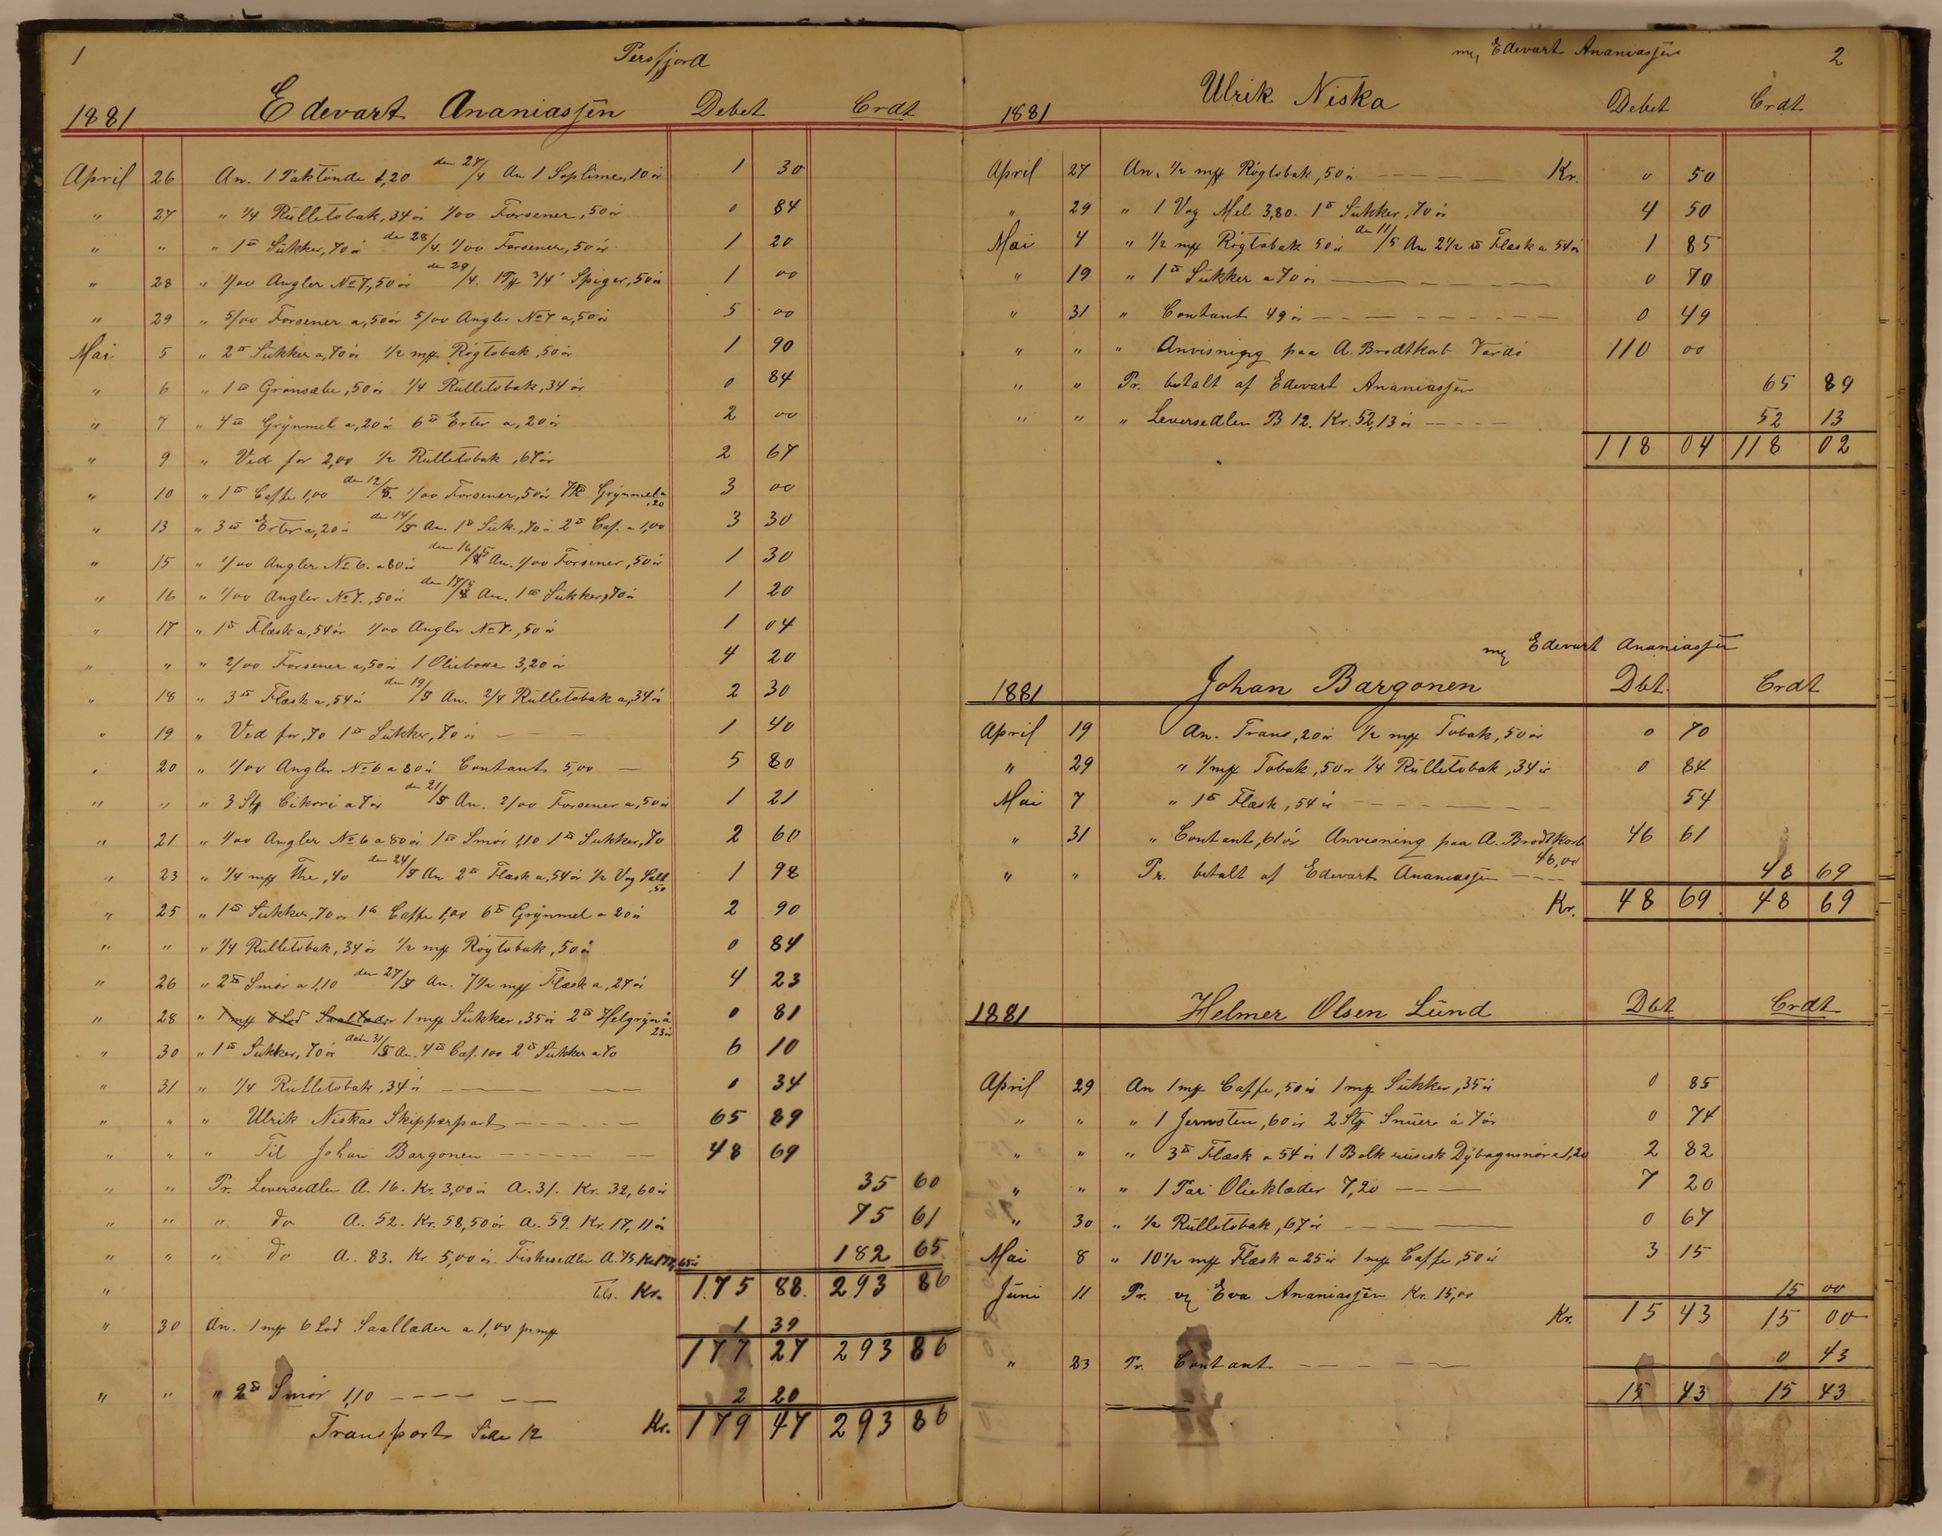 1
Persfjord
1881 Edevart Ananiassen Debet Crdt
April 26 An. 1 Taktønde 1,20 den 27/4 An 1 Soplime, 10 ör 1 30
" 27 " 1/4 Rülletobak, 34 ör 1/00 Forsener, 50 ör 0 84
" " " 1 ℔ Sükker, 70 ör den 28/4. 1/00 Forsener, 50 ör 1 20
" 28 " 1/00 Angler No 7, 50 ör den 29/4. 1 Pk 3/4" Spiger, 50 ör 1 00
" 29 " 5/00 Forsener a, 50 ör 5/00 Angler No 7 a, 50 ör 5 00
Mai 5 " 2 ℔ Sükker a, 70 ör 1/2 mk Rögtobak, 50 ör 1 90
" 6 " 1 ℔ Grönsæbe, 50 ör 1/4 Rülletobak, 34 ör 0 84
" 7 " 4 ℔ Grÿnmel a, 20 ör 6 ℔ Erter a, 20 ör 2 00
" 9 " Ved for 2,00 1/2 Rülletobak, 67 ör 2 67
" 10 " 1 ℔ Caffe 1,00 den 12/5. 1/00 Forsener, 50 ör Grÿnmel a ,20 3 00
" 13 " 3 ℔ Erter a, 20 ör den 14/5 An. 1 ℔ Sük., 70 ör 2 ℔ Caf. a 1,00 3 30
" 15 " 1/00 Angler No 6. a 80 ör den 16/5 An. 1/00 Forsener, 50 ör 1 30
" 16 " 1/00 Angler No 7., 50 ör den 17/5 An. 1 ℔ Sükker, 70 ör 1 20
" 17 " 1 ℔ Flæsk a, 54 ör 1/00 Angler No 7., 50 ör 1 04
" " " 2/00 Forsener a, 50 ör 1 Olieboxe 3,20 ör 4 20
" 18 " 3 ℔ Flæsk a, 54 ör den 19/5 An. 2/4 Rülletobak a, 34 ör 2 30
" 19 " Ved for, 70 1 ℔ Sükker, 70 ör 1 40
" 20 " 1/00 Angler No 6 a 80 ör Contant 5,00 5 80
" " " 3 Stk Cikori a 7 ör den 21/5 An. 2/00 Forsener a, 50 ör 1 21
" 21 " 1/00 Angler No 6 a 80 ör 1 ℔ Smör 1,10 1 ℔ Sukker, 70 2 60
" 23 " 1/4 mk The, 40 den 24/5 An 2 ℔ Flæsk a, 54 ör 1/2 Vog Salt ,50 1 98
" 25 " 1 ℔ Sükker, 70 ör 1 ℔ Caffe 1,00 6 ℔ Grÿnmel a 20 ör 2 90
" " " 1/4 Rülletobak, 34 ör 1/2 mk Rögtobak, 50 ör 0 84
" 26 " 2 ℔ Smör a 1,10 den 27/5 An. 7 1/2 mk Flæsk a, 27 ör 4 23
" 28 " 1 mk 6 Lod Saallæder 1 mk Sükker, 35 ör 2 ℔ Helgrÿn a 23 ör 0 81
" 30 " 1 ℔ Sükker, 70 ör den 31/5 An. 4 ℔ Caf. 1,00 2 ℔ Sükker a 70 6 10
" 31 " 1/4 Rülletobak, 34 ör 0 34
" " " Ulrik Niskas Skipperpart 65 89
" " " Til Johan Bargonen 48 69
" " Pr. Leversedlen A. 16. Kr. 3,00 ör A. 31. Kr. 32,60 ör 35 60
" " " do A. 52. Kr. 58,50 ör A. 59. Kr. 17,11 ör 75 61
" " " do A. 83. Kr. 5,00 ör. Fiskesedlen A. 75. Kr. 177,65 ör 182 65
" Tils. Kr. 175 88. 293 86
" 30 An. 1 mk 6 Lod Saallæder a 1,00 pr mk 1 39
177 27 293 86
" " " 2 ℔ Smör 1,10 2 20
Transport Side 12 Kr. 179 47 293 86
2
m/ Edevart Ananiassen
1881 Ulrik Niska Debet Crdt
April 27 An. 1/2 mk Rögtobak, 50 ör Kr. 0 50
" 29 " 1 Vog Mel 3,80. 1 ℔ Sükker, 70 ör 4 50
Mai 4 " 1/2 mk Rögtobak 50 ör den 11/5 An 2 1/2 ℔ Flæsk a 54 ör 1 85
" 19 " 1 ℔ Sükker a 70 ör 0 70
" 31 " Contant 49 ör 0 49
" " " Anvisning paa A. Brodtkorb Vardö 110 00
" " Pr. betalt af Edevart Ananiassen 65 89
" " " Leversedlen B 12. Kr. 52,13 ör 52 13
118 04 118 02
m/ Edevart Ananiassen
1881 Johan Bargonen Dbt. Crdt
April 19 An. Tran, 20 ör 1/2 mk Tobak, 50 ör 0 70
" 29 " 1 mk Tobak, 50 ör 1/4 Rülletobak, 34 ör 0 84
Mai 7 " 1 ℔ Flæsk, 54 ör 54
" 31 " Contant, 61 ör Anvisning paa A. Brodtkorb 46,00 46 61
" " Pr. betalt af Edevart Ananiassen 48 69
Kr. 48 69 48 69
1881 Helmer Olsen Lünd Dbt Crdt
April 29 An 1 mk Caffe, 50 ör 1 mk Sükker, 35 ör 0 85
" " " 1 Jernsten, 60 ör 2 Stk Snüere á 7 ör 0 74
" " " 3 ℔ Flæsk a 54 ör 1 Bolk russisk Dÿbagnsnör a 1,20 2 82
" " " 1 Par Olieklæder 7,20 7 20
" 30 " 1/2 Rülletobak, 67 ör 0 67
Mai 8 " 10 1/2 mk Flæsk a 25 ör 1 mk Caffe, 50 ör 3 15
Jüni 11 Pr. v/ Eva Ananiassen Kr. 15,00 15 00
Kr. 15 43 15 00
" 23 Pr. Contant 0 43
15 43 15 43